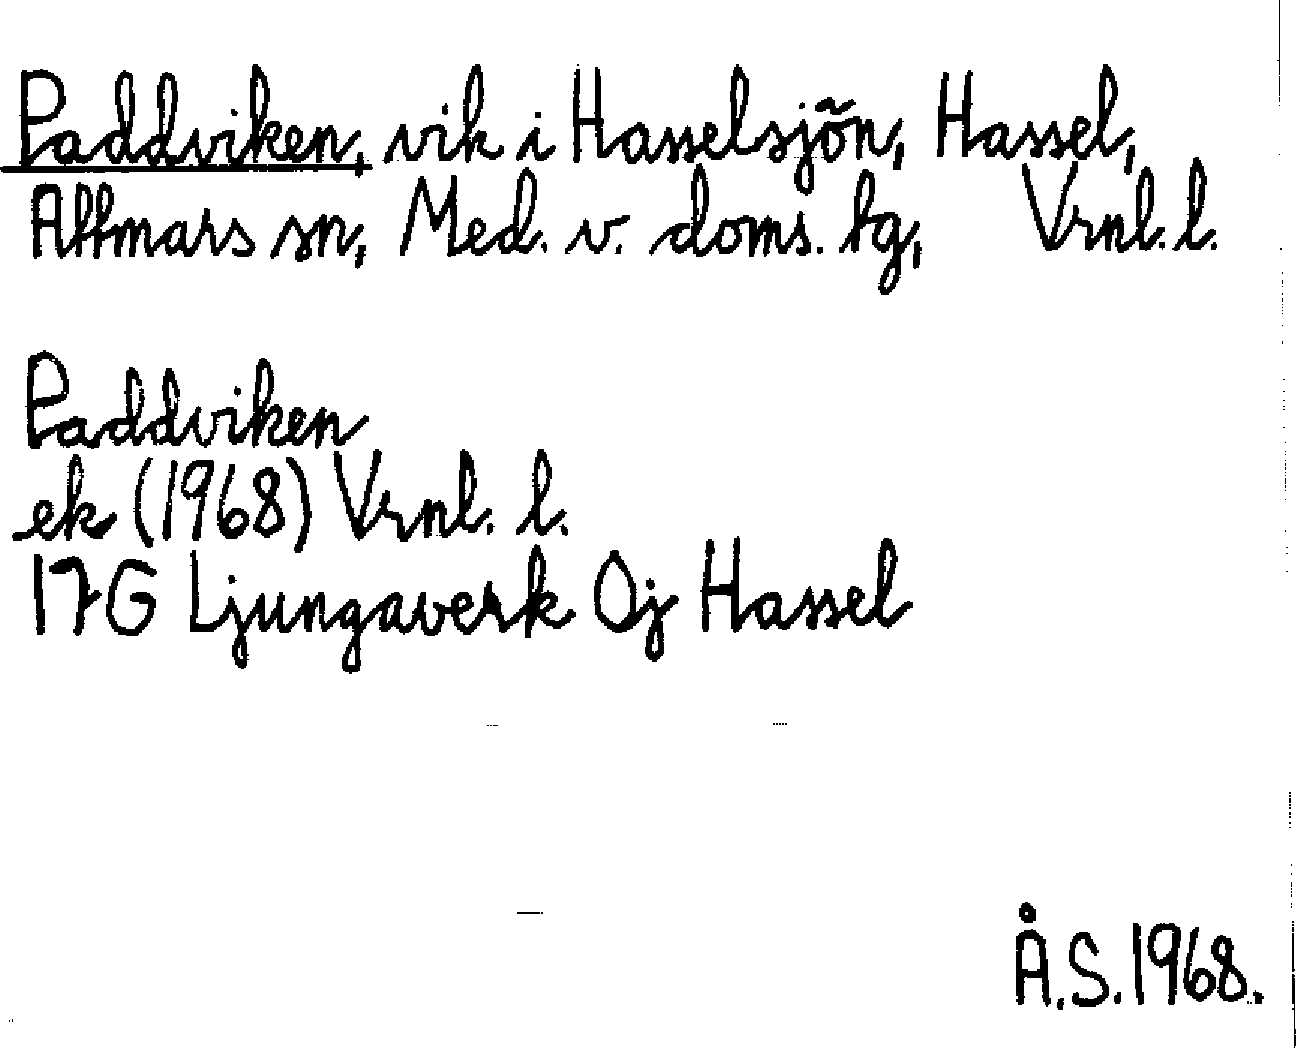 Paddviken, vik i Hasselsjön, Hassel,
Attmars sn, Med. v. doms. tg, Vrnl. l.
Paddviken
ek (1968) Vrnl. l.
17G Ljungaverk Oj Hassel
Å.S. 1968.